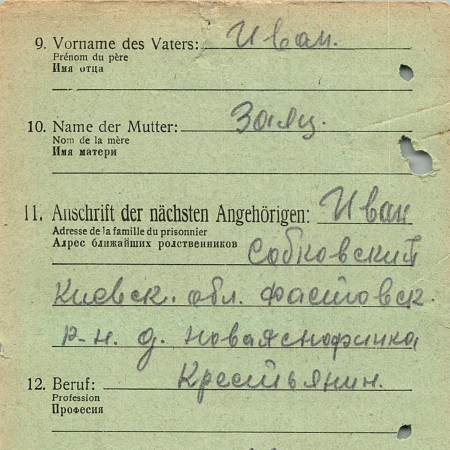 9. Vorname des Vaters: Иван.
Prénom du père
Имя отца
10. Name der Mutter: Заяц.
Nom de la mère
Имя матери
11. Anschrift der nächsten Angehörigen: Иван
Adresse de la famille du prisonnier
Адрес ближайших родственников Собковский
Киевск. обл. Фастовск.
р-н. д.
12. Beruf: Крестьянин.
Profession
Професия